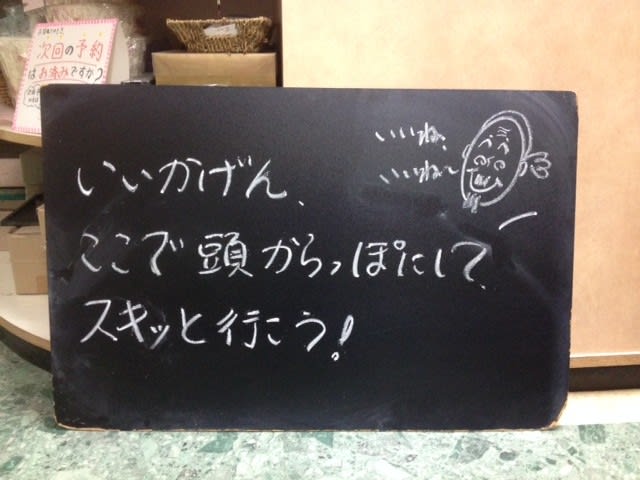 次回の予約
はお済みですか?
いいね、
いいね〜
いいかげん、
ここで頭からっぽにして、
スキッと行こう!